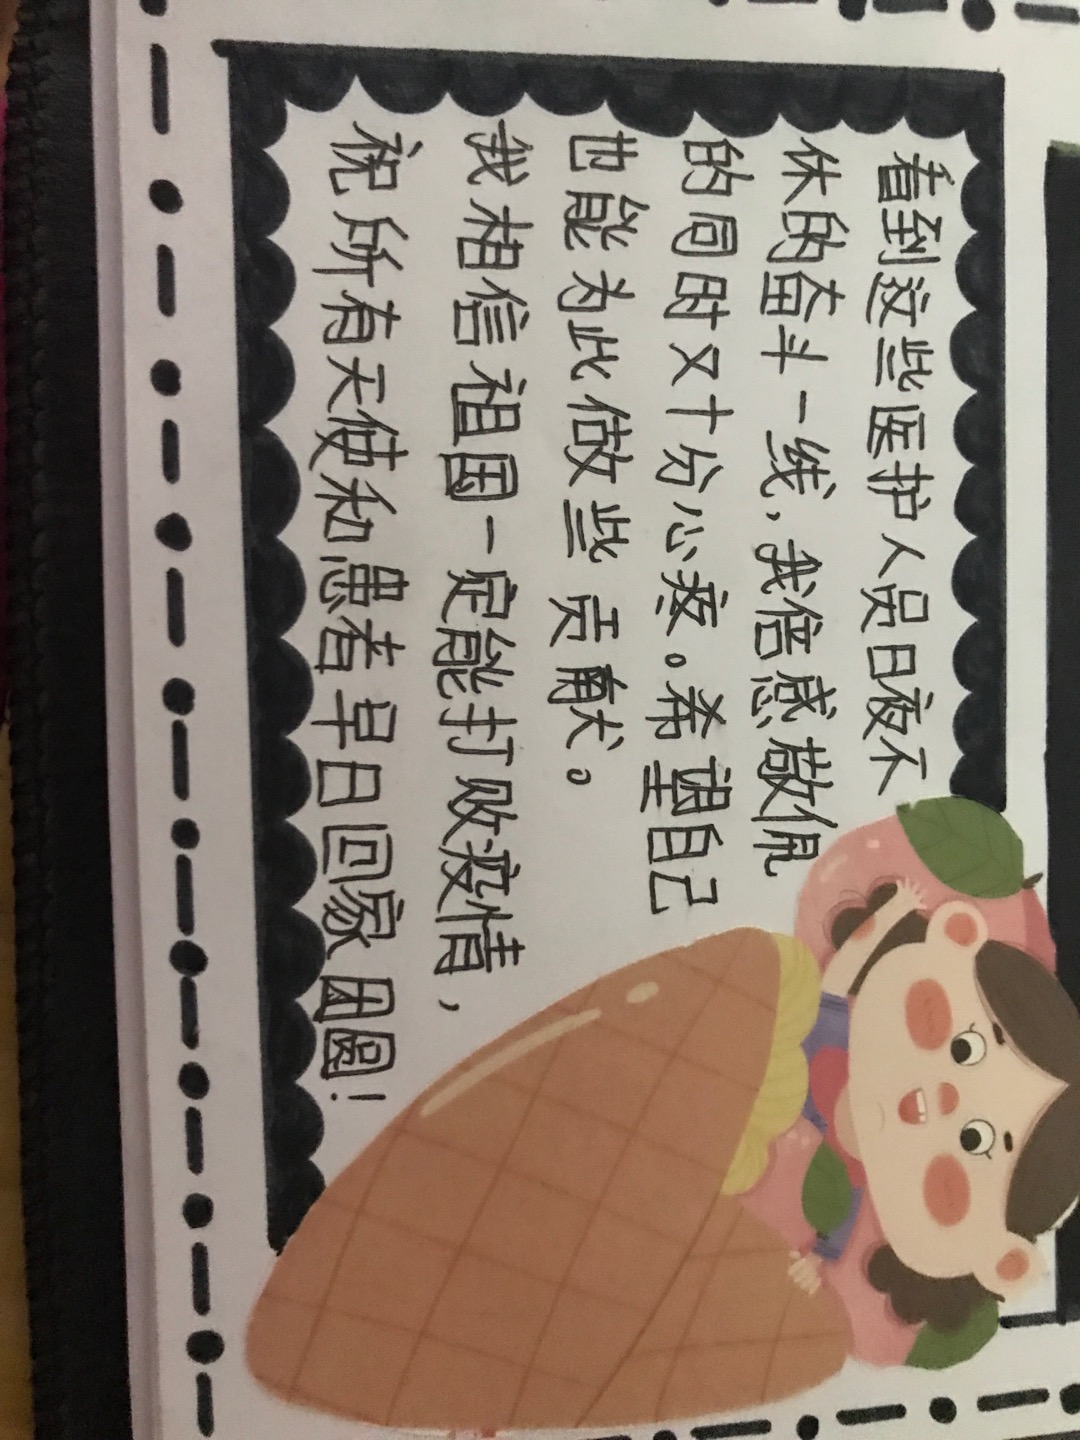 看到这些医护人员日夜不
休的奋斗一线，我倍感敬佩
的同时又十分心疼。希望自己
也能为此做些贡献。
我相信祖国一定能打败疫情，
祝所有天使和患者早日回家团圆！